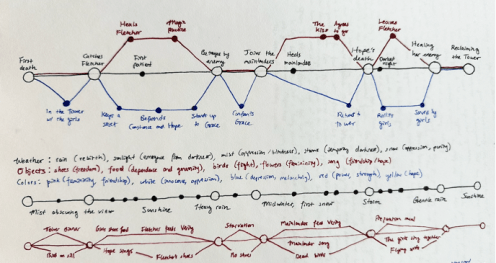 Heals Fletcher
Magic Practice
The Agnes
Leaves Fletcher
First death
Catches Fletcher
First patient
Betrayed by enemy
Joins the mainlanders
Heals mainlander
Hope's death
Healing her enemy
Reclaiming the Tower
In the Tower w/ the girls
Keeps a secret
Befriends Constance and Hope
Stands up to Grace
Confronts Grace
Rallies girls
Saved by girls
Weather: rain (rebirth), sunlight (emergence from darkness), mist (oppression/blindness), storm (impending darkness), snow (oppression, purity)
Objects: shoes (freedom), food (dependence and generosity), birds (flight), flowers (femininity), song (friendship/hope)
Colors: pink (femininity, friendship), white (innocence, oppression), blue (depression, melancholy), red (power, strength), yellow (hope)
Mist obscuring the view
Sunshine
Heavy rain
Midwinter, first snow
Storm
Gentle rain
Sunshine
Tower dinner
Girls share food
Fletcher feeds
Starvation
Mainlander feed
Hope songs
Fletcher's shoes
No shoes
Mainlander song
Dead birds
The girls sing again
Flying birds